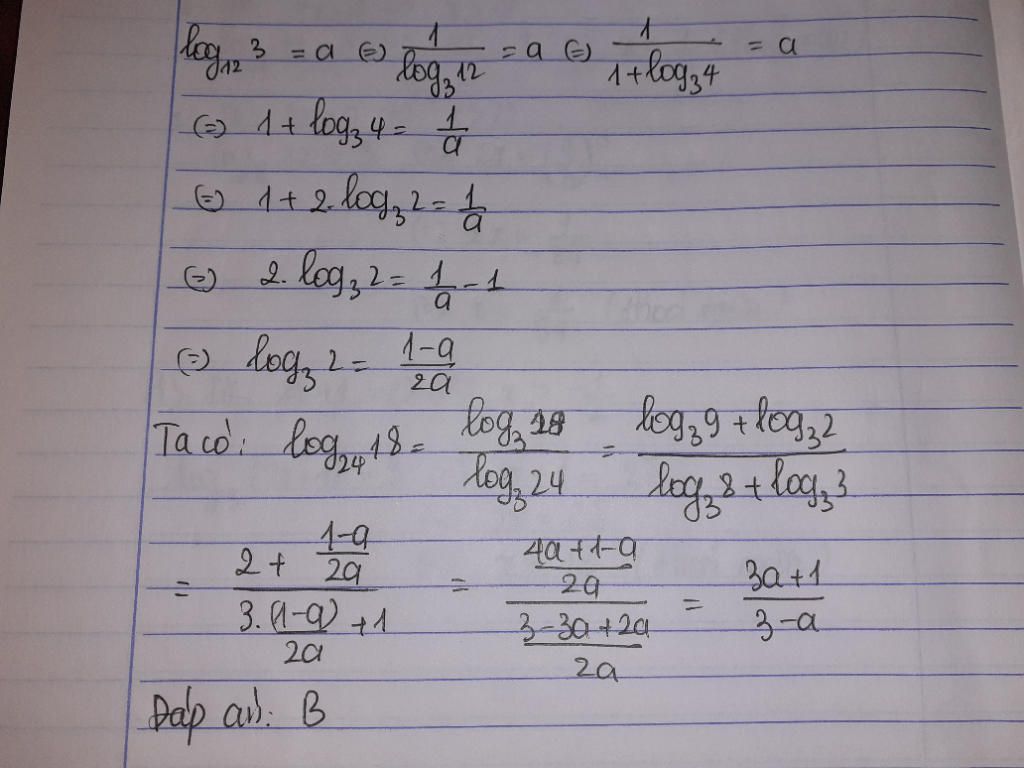 log₁₂ 3 = a (=) 1/(log₃12) = a (=) 1/(1+log₃4) = a
(=) 1 + log₃4 = 1/a
(=) 1 + 2.log₃2 = 1/a
(=) 2.log₃2 = 1/a - 1
(=) log₃2 = (1-a)/(2a)
Ta có: log₂₄18 = (log₃18)/(log₃24) = (log₃9 + log₃2)/(log₃8 + log₃3)
= (2 + (1-a)/(2a))/((3.(1-a))/(2a) + 1) = ((4a+1-a)/(2a))/((3-3a+2a)/(2a)) = (3a+1)/(3-a)
Đáp án: B